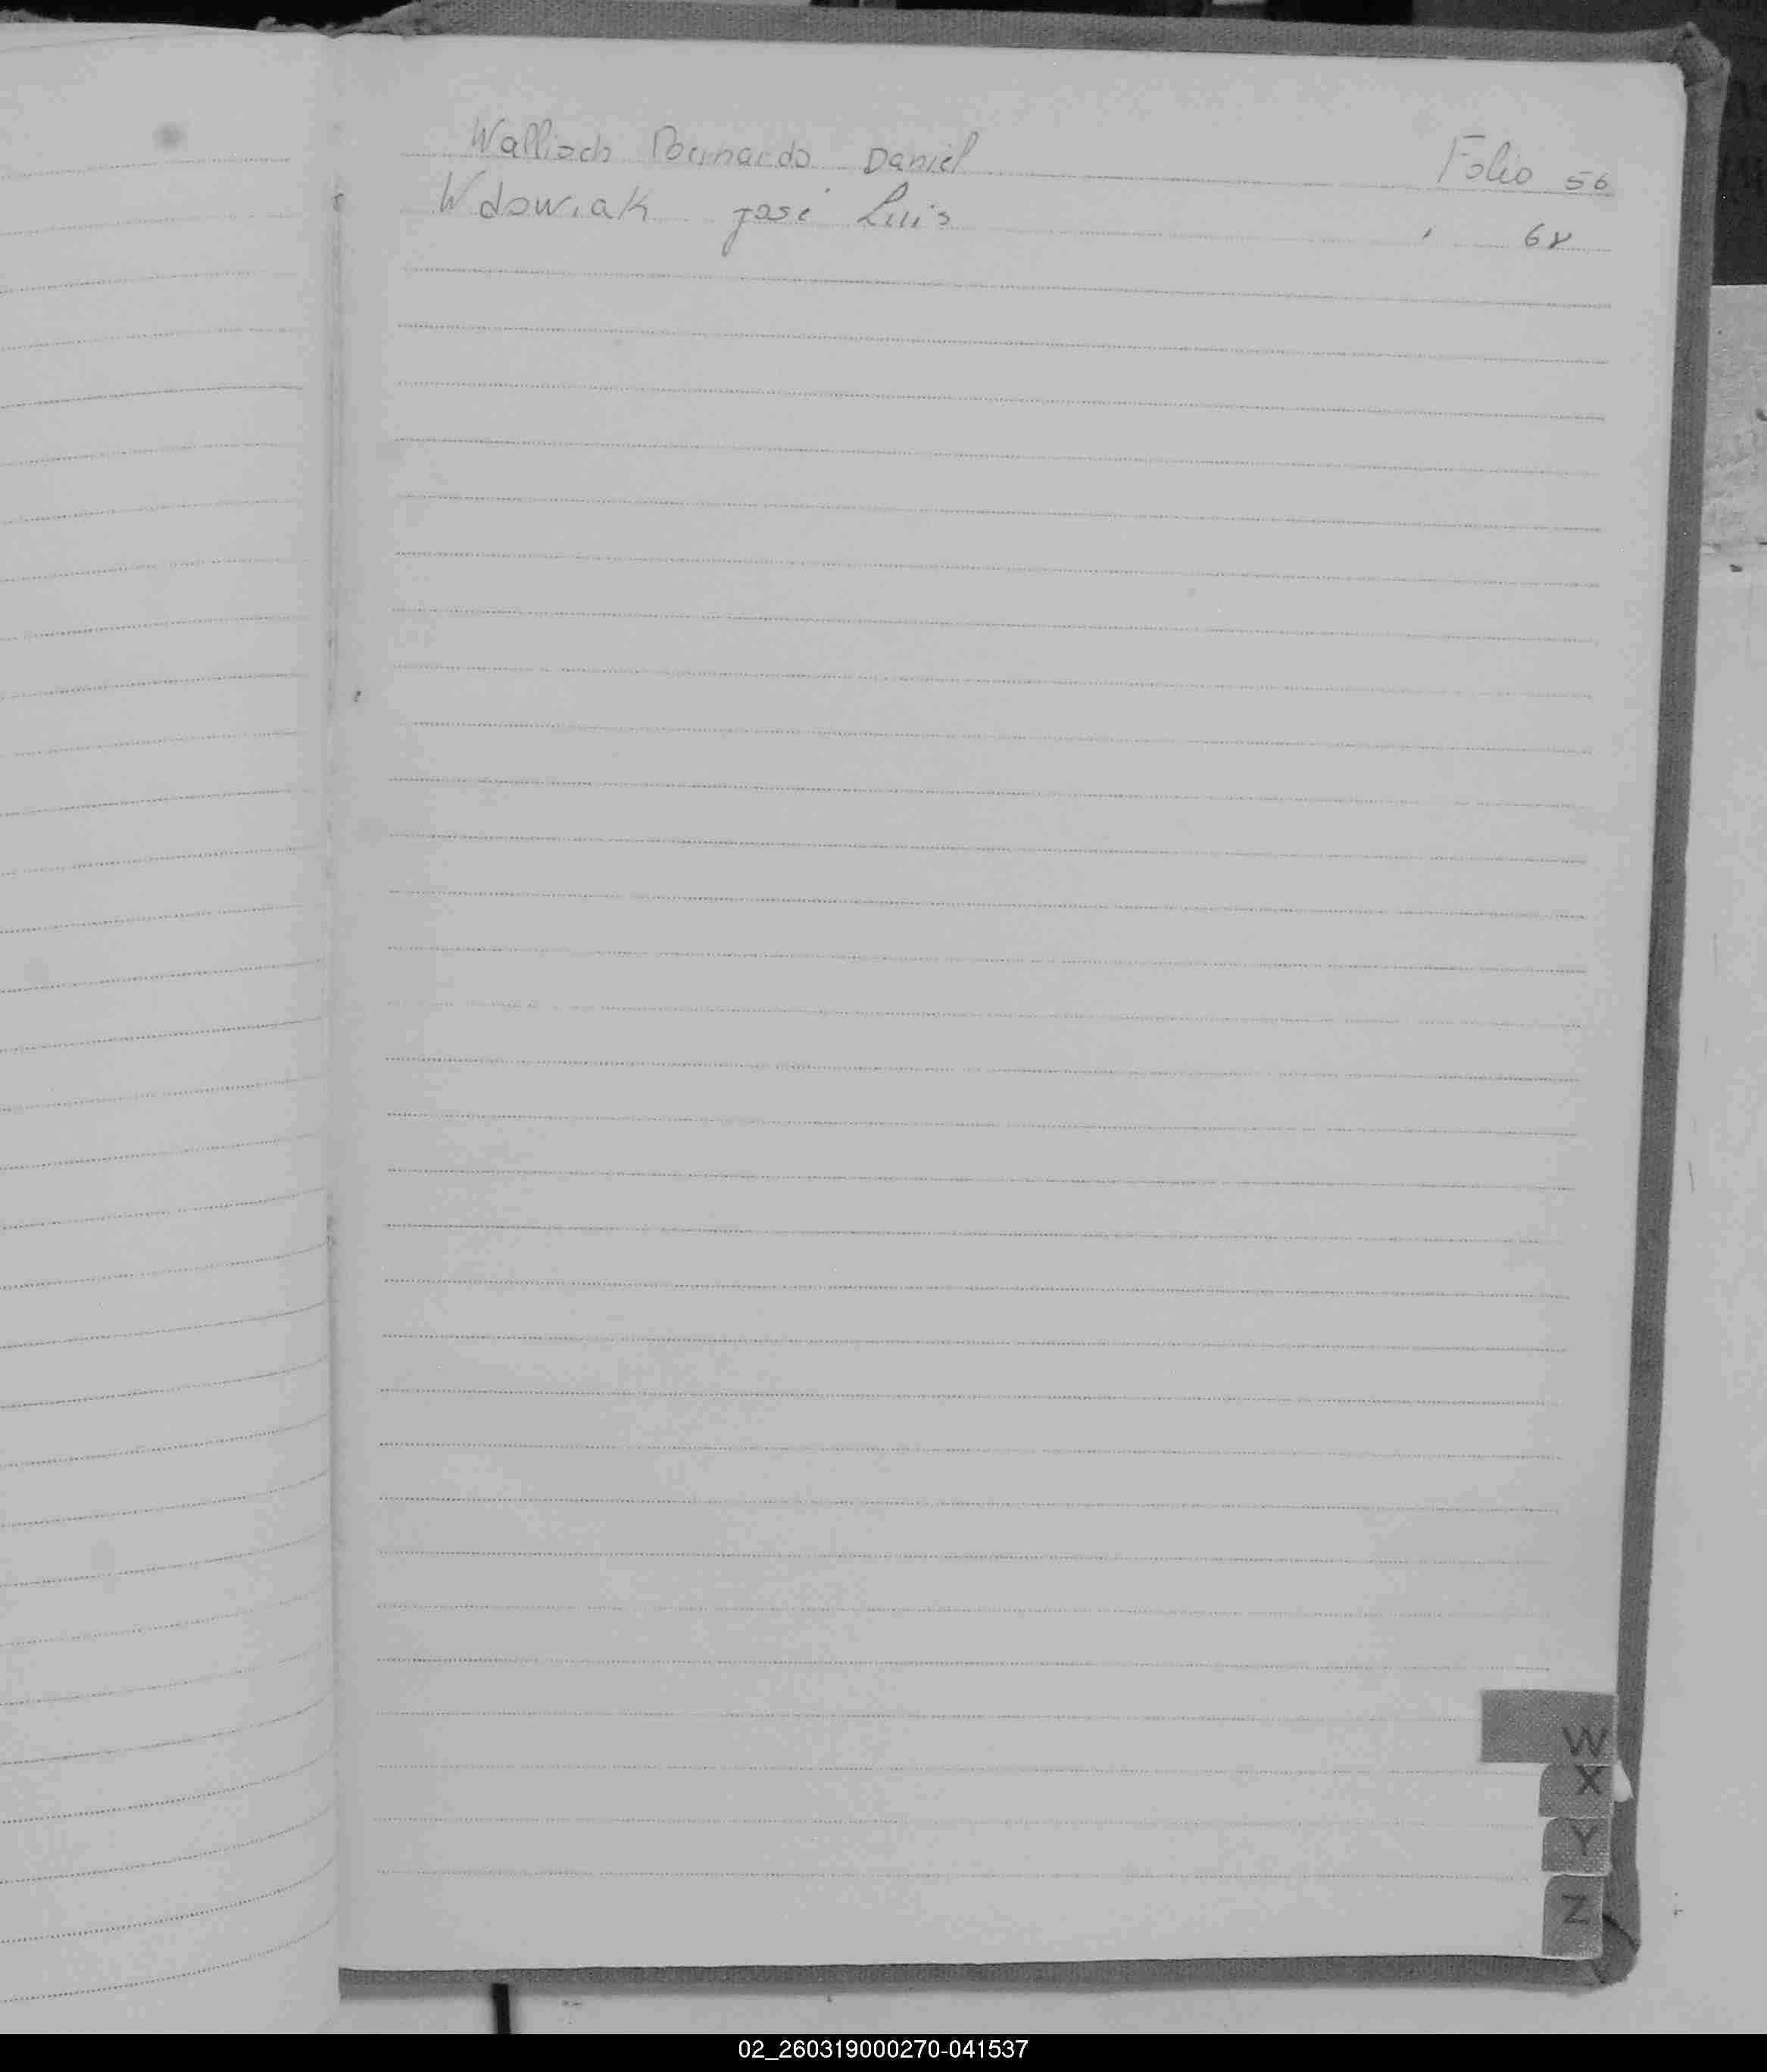 Wallisch Bernardo Daniel Folio 56
Wdowiak José Luis " 68
W
X
Y
Z
02_260319000270-041537